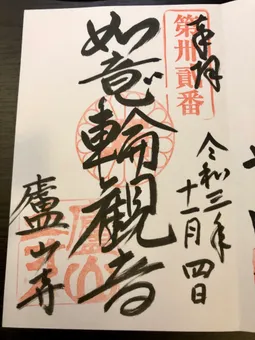 奉拝
第卅貳番
令和三年
十一月四日
如意輪観音
廬山寺